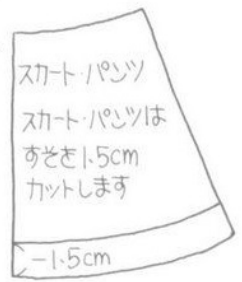 スカート・パンツ
スカート・パンツは
すそを1.5cm
カットします
-1.5cm